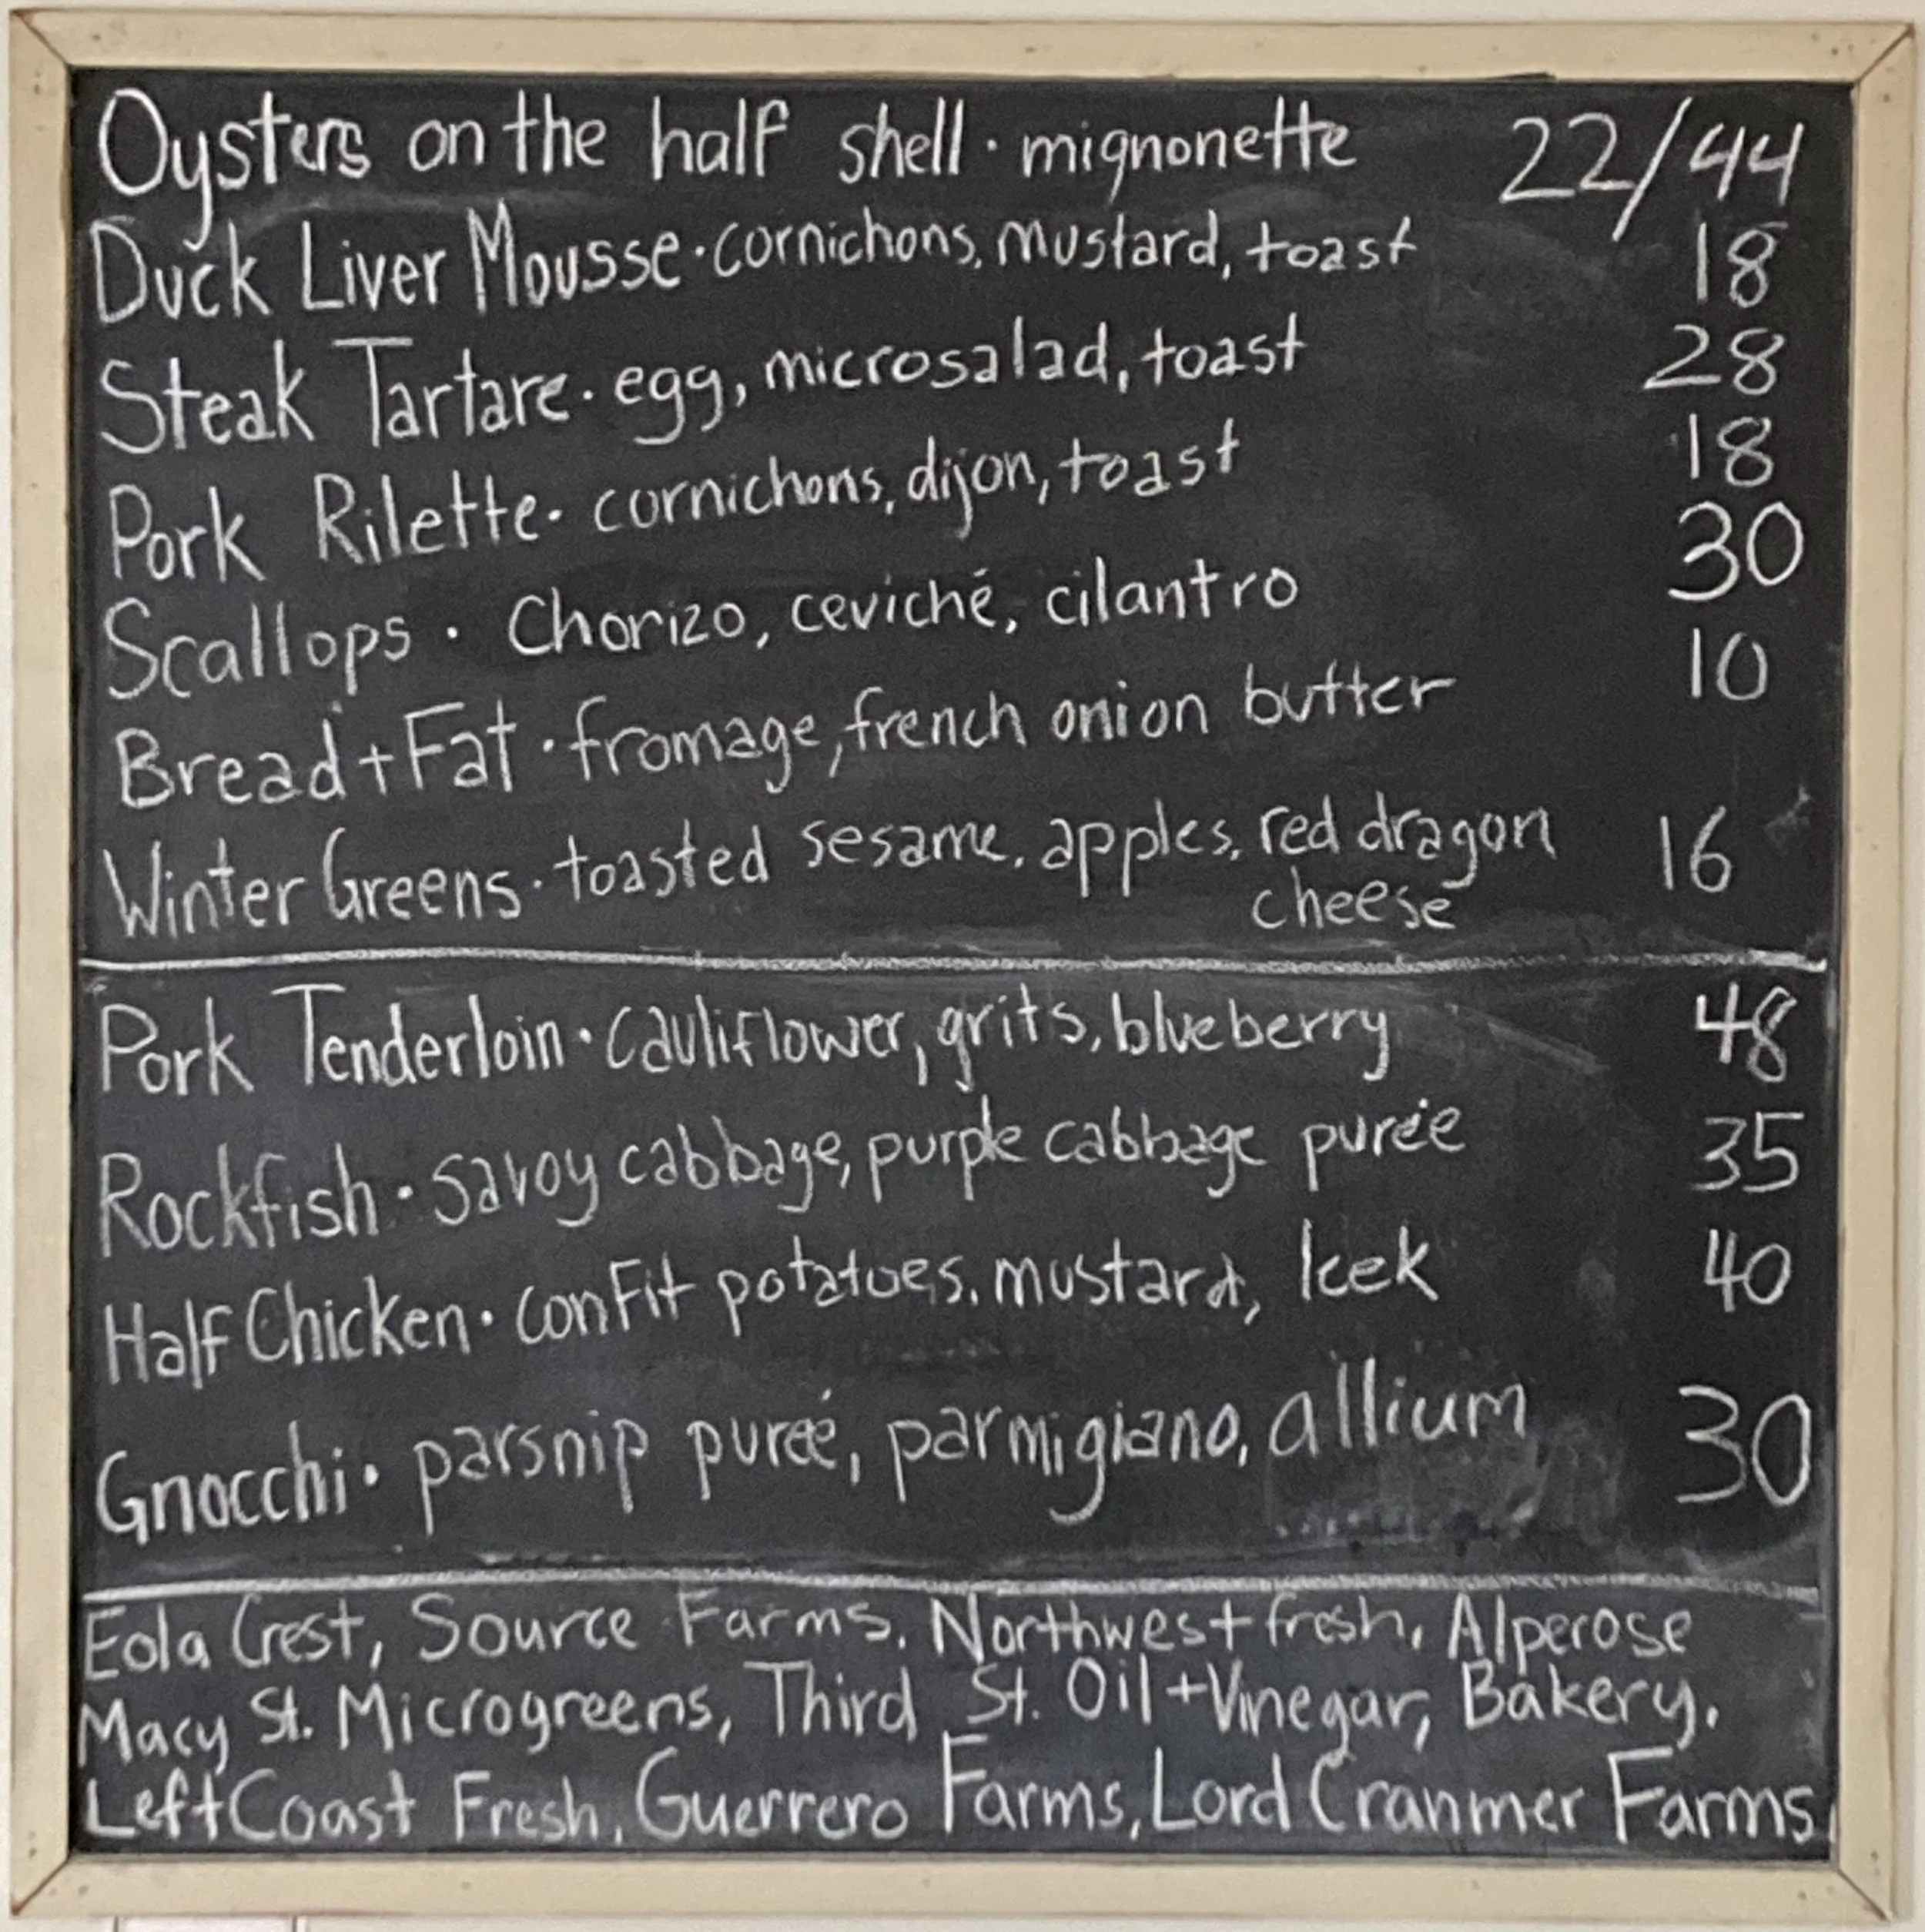 Oysters on the half shell · mignonette 22/44
Duck Liver Mousse · cornichons, mustard, toast 18
Steak Tartare · egg, microsalad, toast 28
Pork Rilette · cornichons, dijon, toast 18
Scallops · Chorizo, ceviché, cilantro 30
Bread + Fat · fromage, french onion butter 10
Winter Greens · toasted sesame, apples, red dragon 16
cheese
Pork Tenderloin · cauliflower, grits, blueberry 48
Rockfish · savoy cabbage, purple cabbage purée 35
Half Chicken · confit potatoes, mustard, leek 40
Gnocchi · parsnip pureé, parmigiano, allium 30
Eola Crest, Source Farms, Northwest fresh, Alperose
Macy St. Microgreens, Third St. Oil + Vinegar, Bakery,
Left Coast Fresh, Guerrero Farms, Lord Cranmer Farms,